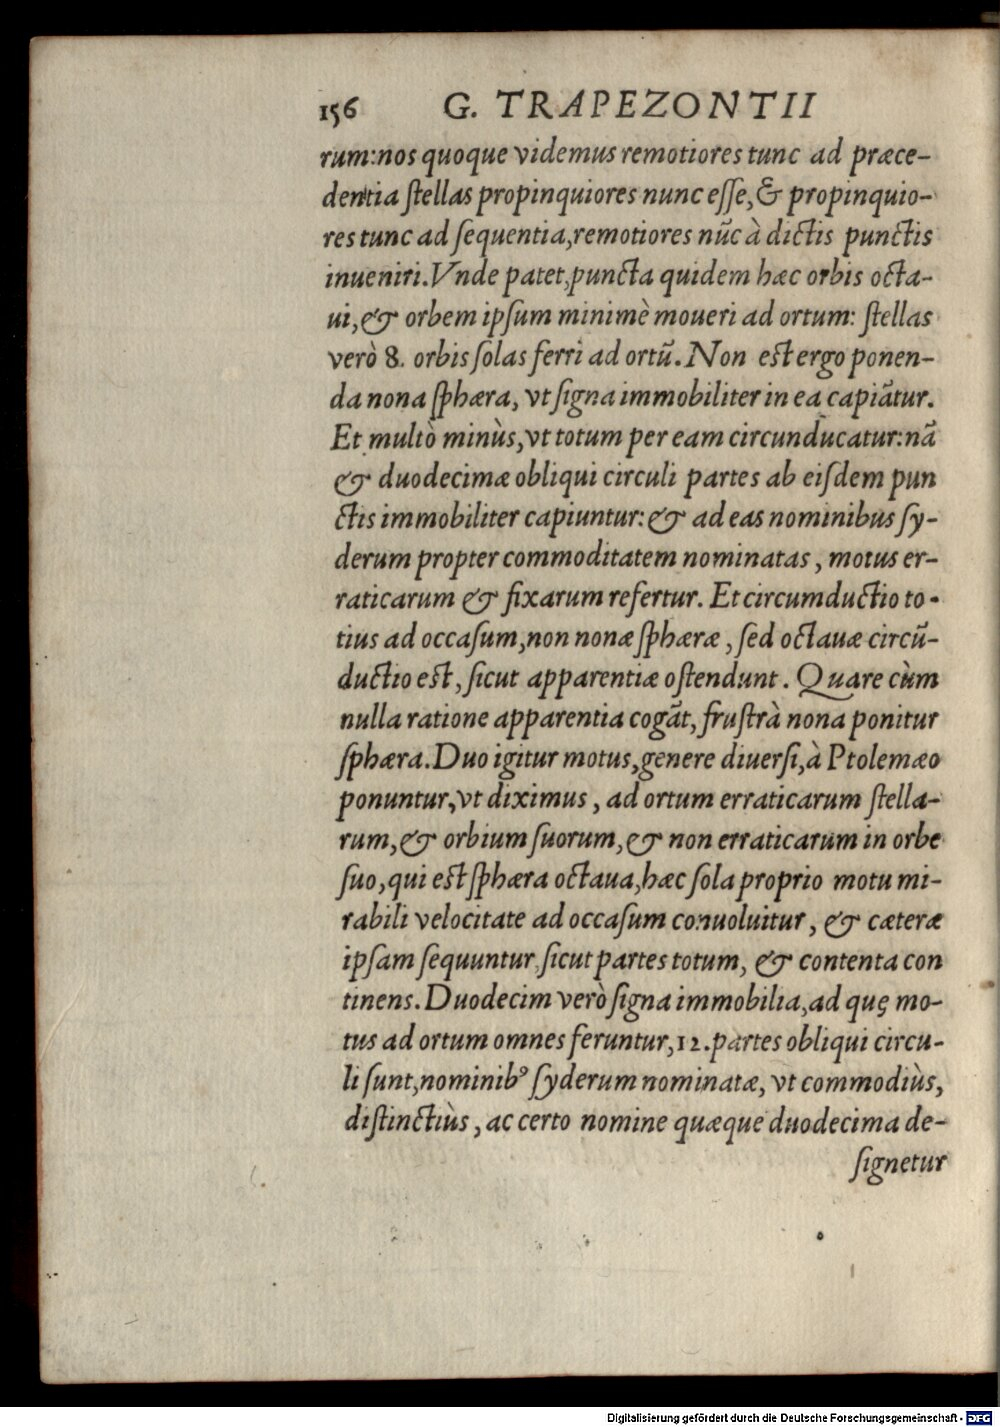 156 G. TRAPEZONTII
rum:nos quoque videmus remotiores tunc ad præce-
dentia ſtellas propinquiores nunc eſſe,& propinquio-
res tunc ad ſequentia,remotiores nũc à dictis punctis
inueniri.Vnde patet,puncta quidem hæc orbis octa-
ui,& orbem ipſum minimè moueri ad ortum: ſtellas
verò 8. orbis ſolas ferri ad ortũ. Non eſt ergo ponen-
da nona ſphæra, vt ſigna immobiliter in ea capiãtur.
Et multò minùs,vt totum per eam circunducatur:nã
& duodecimæ obliqui circuli partes ab eiſdem pun
ctis immobiliter capiuntur:& ad eas nominibus ſy-
derum propter commoditatem nominatas, motus er-
raticarum & fixarum refertur. Et circumductio to-
tius ad occaſum,non nonæ ſphæræ, ſed octauæ circũ-
ductio eſt, ſicut apparentiæ oſtendunt. Quare cùm
nulla ratione apparentia cogãt, fruſtrà nona ponitur
ſphæra. Duo igitur motus,genere diuerſi,à Ptolemæo
ponuntur,vt diximus, ad ortum erraticarum ſtella-
rum,& orbium ſuorum,& non erraticarum in orbe
ſuo,qui eſt ſphæra octaua,hæc ſola proprio motu mi-
rabili velocitate ad occaſum conuoluitur, & cæteræ
ipſam ſequuntur,ſicut partes totum, & contenta con
tinens. Duodecim verò ſigna immobilia,ad quę mo-
tus ad ortum omnes feruntur,12.partes obliqui circu-
li ſunt,nominibꝰ ſyderum nominatæ, vt commodiùs,
diſtinctiùs, ac certo nomine quæque duodecima de-
ſignetur
Digitalisierung gefördert durch die Deutsche Forschungsgemeinschaft - DFG